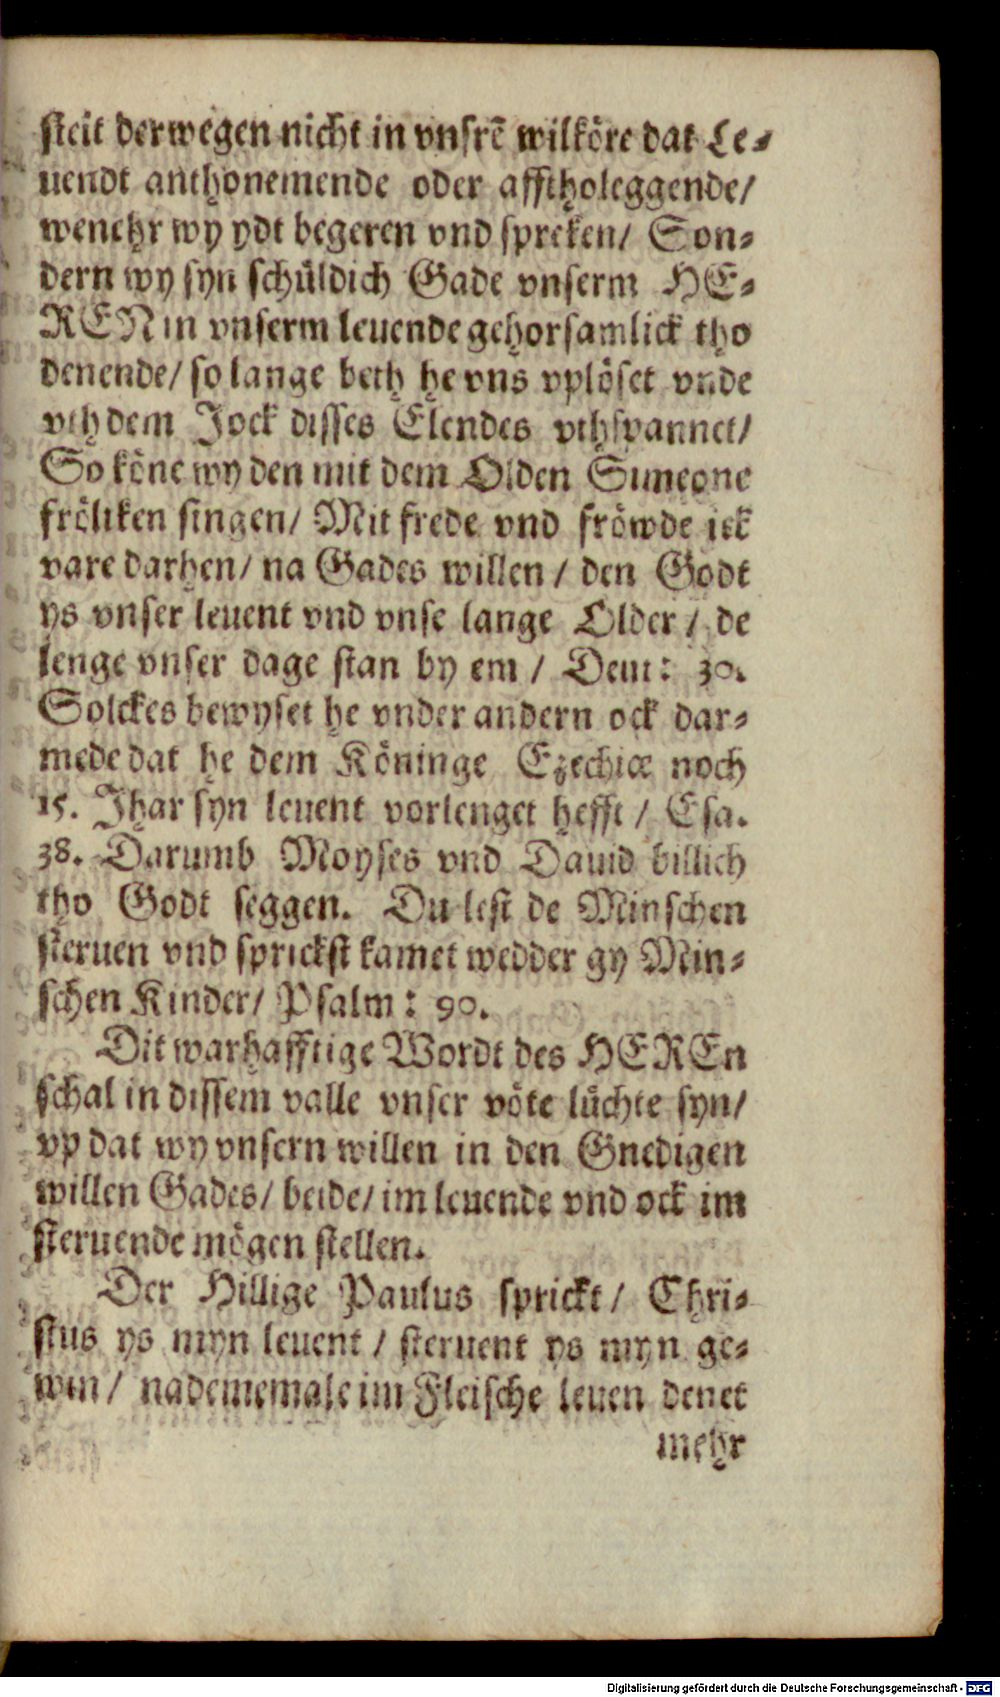 steit derwegen nicht in vnsrē wilköre dat Le⸗
uendt anthonemende oder afftholeggende/
wenehr wy ydt begeren vnd spreken/ Son⸗
dern wy syn schüldich Gade vnserm HE⸗
REN in vnserm leuende gehorsamlick tho
denende/ so lange beth he vns vplöset vnde
vth dem Jock disses Elendes vthspannet/
So köne wy den mit dem Olden Simeone
fröliken singen/ Mit frede vnd fröwde ick
vare darhen/ na Gades willen/ den Godt
ys vnser leuent vnd vnse lange Older/ de
lenge vnser dage stan by em/ Deut: 30.
Solckes bewyset he vnder andern ock dar⸗
mede dat he dem Köninge Ezechiæ noch
15. Jhar syn leuent vorlenget hefft/ Esa.
38. Darumb Moyses vnd Dauid billich
tho Godt seggen. Du lest de Minschen
steruen vnd sprickst kamet wedder gy Min⸗
schen Kinder/ Psalm: 90.
Dit warhafftige Wordt des HEREn
schal in dissem valle vnser vöte lüchte syn/
vp dat wy vnsern willen in den Gnedigen
willen Gades/ beide/ im leuende vnd ock im
steruende mögen stellen.
Der Hillige Paulus sprickt/ Chri⸗
stus ys myn leuent/ steruent ys myn ge⸗
win/ nadememale im Fleische leuen denet
mehr
Digitalisierung gefördert durch die Deutsche Forschungsgemeinschaft - DFG